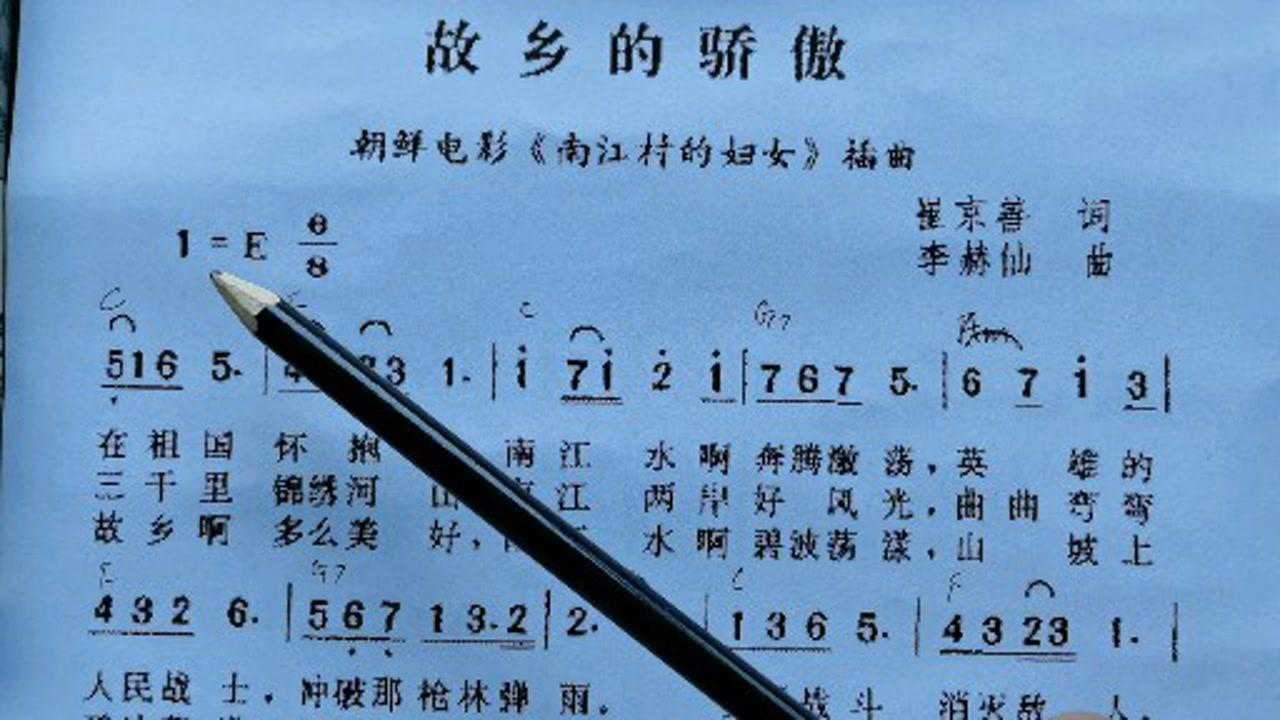 故乡的骄傲
朝鲜电影《南江村的妇女》插曲
崔京善 词
1=E 6/8
李赫仙 曲
C C G7
516 5. | 4 3 1. | i 7i 2 i | 767 5. | 6 7 i 3 |
在祖国 怀抱 南江 水啊 奔腾激荡,英 雄的
三千里 锦绣河山 江 两岸好 风光,曲曲弯弯
故乡啊 多么美好, 水啊碧波荡漾,山 坡上
G7 C F
432 6. | 567 13.2 | 2. | 136 5. | 4323 1. |
人民战士,冲破那枪林弹雨。 战斗 消灭敌人,